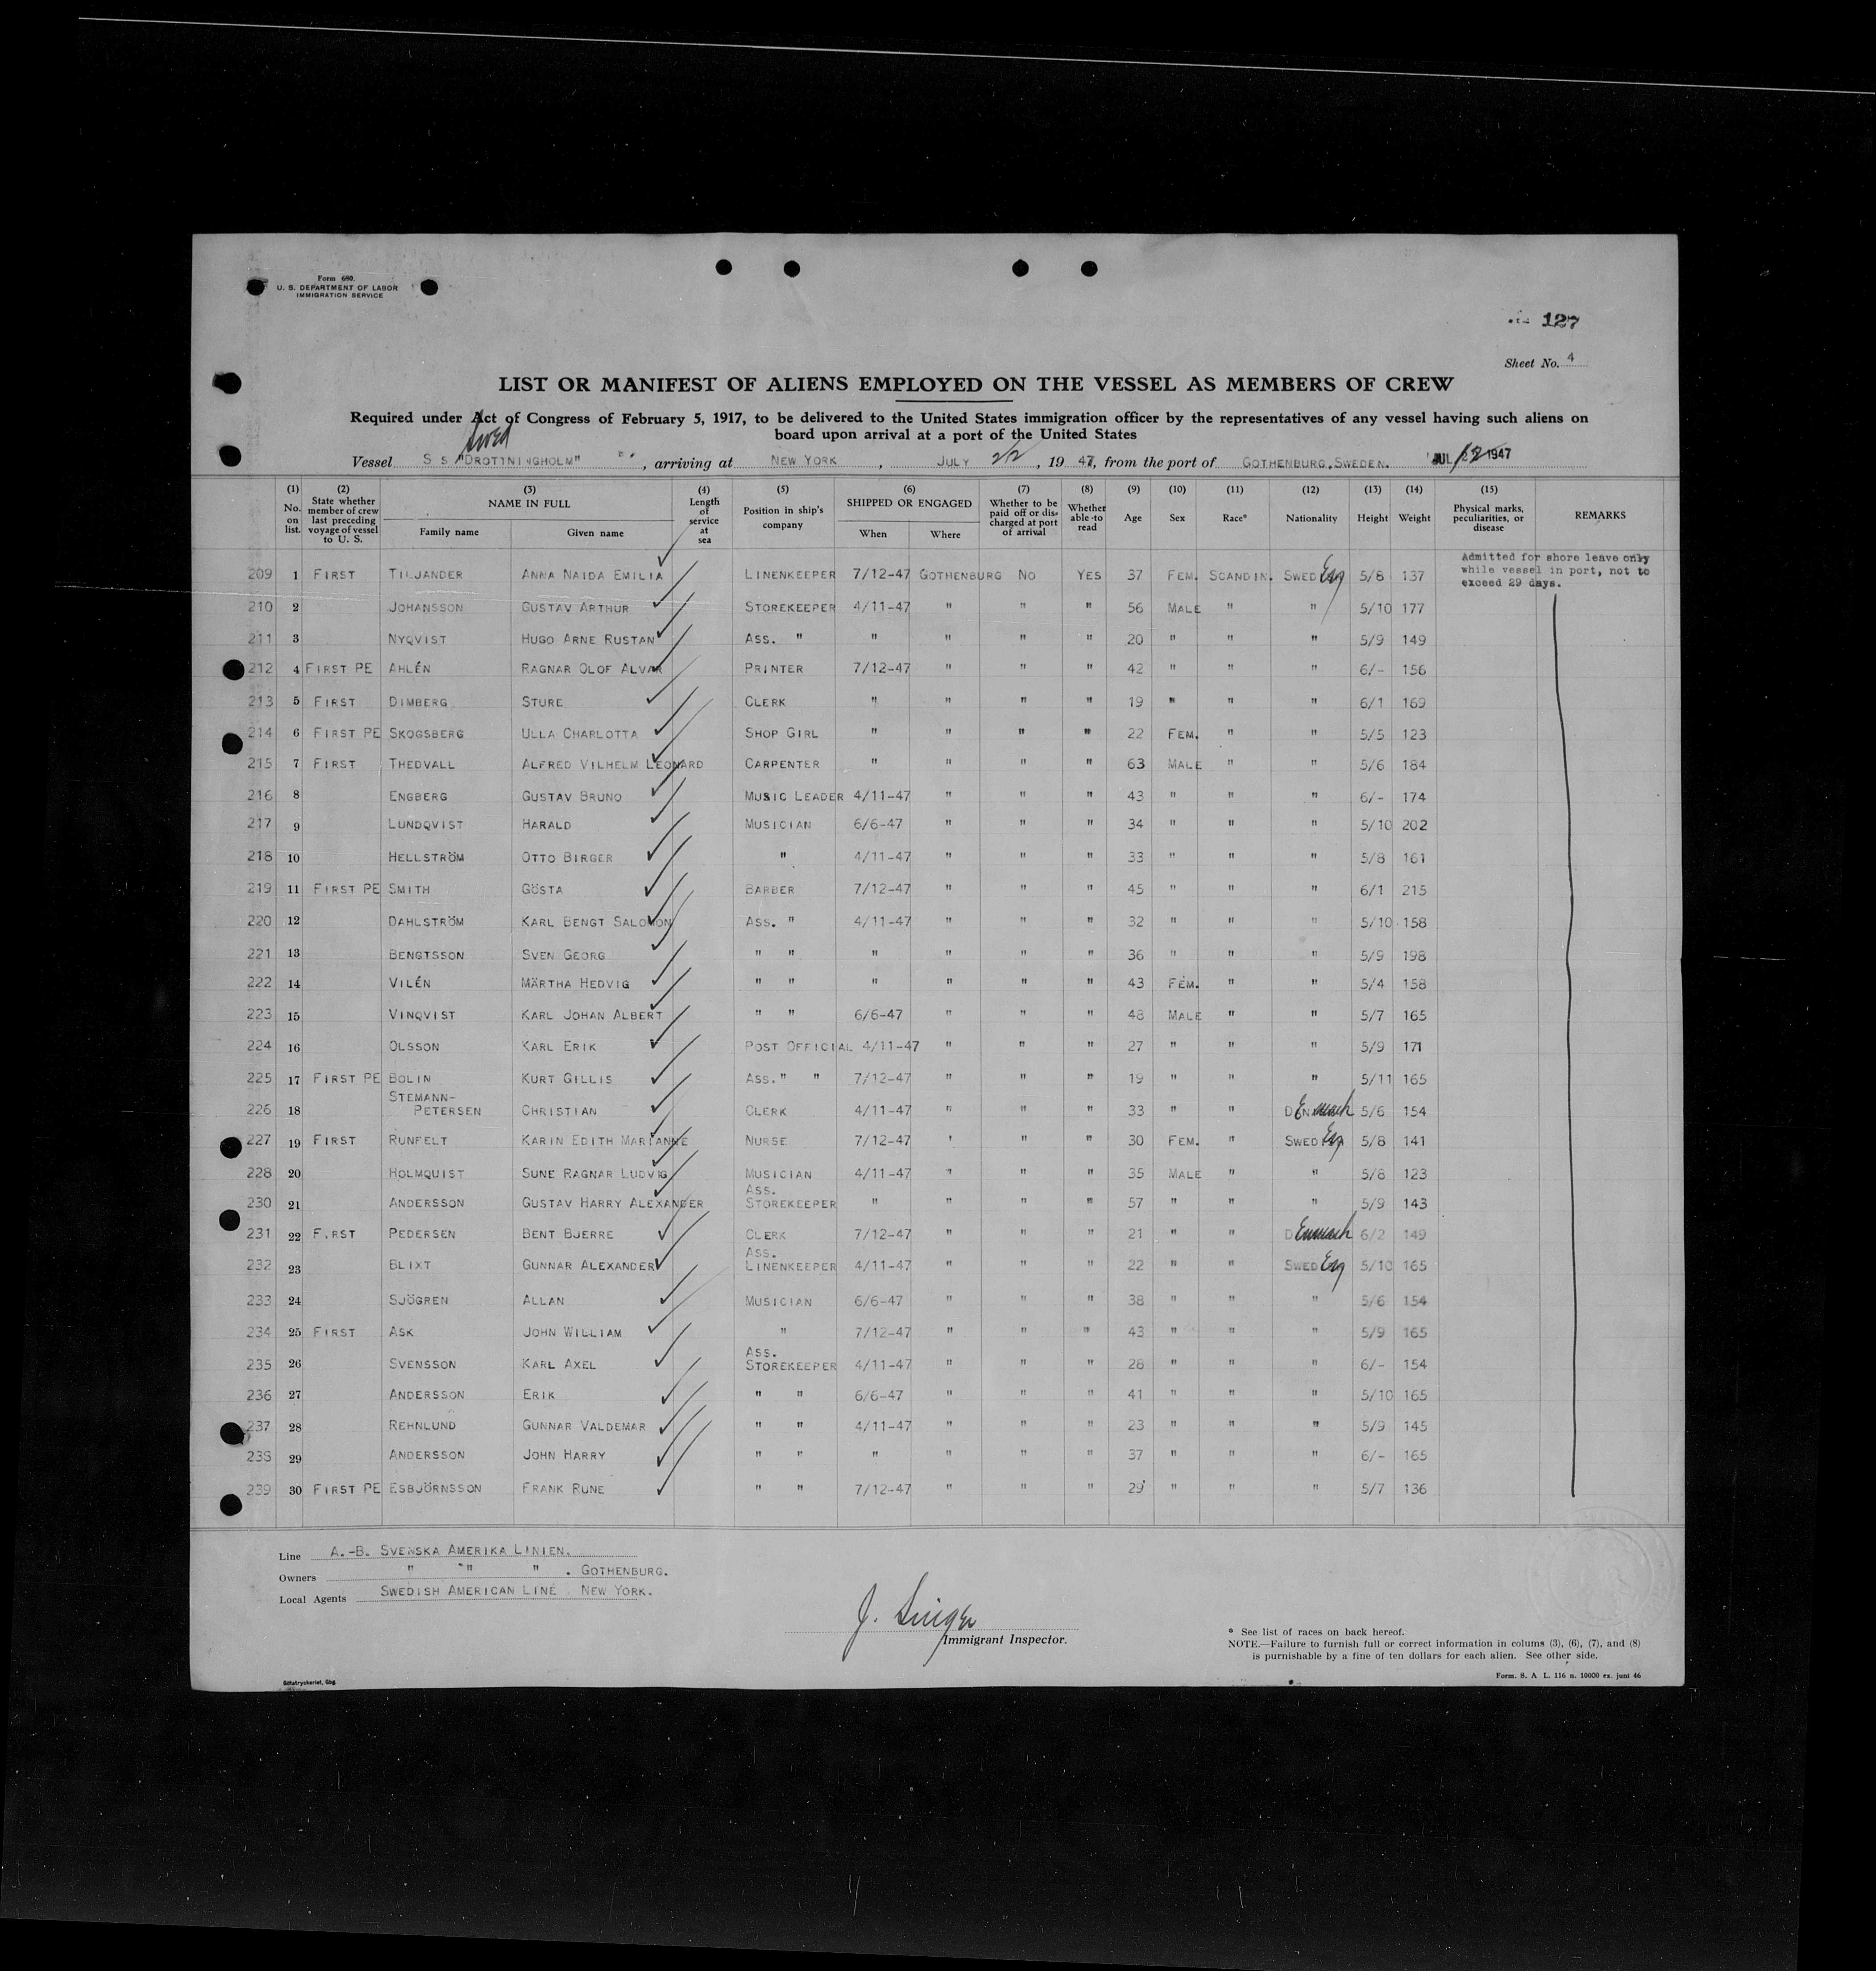 Form 680.
U. S. DEPARTMENT OF LABOR
IMMIGRATION SERVICE
127
Sheet No. 4
LIST OR MANIFEST OF ALIENS EMPLOYED ON THE VESSEL AS MEMBERS OF CREW
Required under Act of Congress of February 5, 1917, to be delivered to the United States immigration officer by the representatives of any vessel having such aliens on
board upon arrival at a port of the United States
Swed
Vessel S S "DROTTNINGHOLM" ", arriving at NEW YORK, JULY 22, 19 47, from the port of GOTHENBURG, SWEDEN. JUL 22 1947
(1) No. on list. (2) State whether member of crew last preceding voyage of vessel to U. S. (3) NAME IN FULL Family name Given name (4) Length of service at sea (5) Position in ship's company (6) SHIPPED OR ENGAGED When Where (7) Whether to be paid off or discharged at port of arrival (8) Whether able to read (9) Age (10) Sex (11) Race* (12) Nationality (13) Height (14) Weight (15) Physical marks, peculiarities, or disease REMARKS
Admitted for shore leave only
while vessel in port, not to
exceed 29 days.
209 1 FIRST TILJANDER ANNA NAIDA EMILIA LINENKEEPER 7/12-47 GOTHENBURG NO YES 37 FEM. SCANDIN. SWED 5/8 137
210 2 JOHANSSON GUSTAV ARTHUR STOREKEEPER 4/11-47 " " " 56 MALE " " 5/10 177
211 3 NYQVIST HUGO ARNE RUSTAN ASS. " " " " " 20 " " " 5/9 149
212 4 FIRST PE AHLÉN RAGNAR OLOF ALVAR PRINTER 7/12-47 " " " 42 " " " 6/- 156
213 5 FIRST DIMBERG STURE CLERK " " " " 19 " " " 6/1 169
214 6 FIRST PE SKOGSBERG ULLA CHARLOTTA SHOP GIRL " " " " 22 FEM. " " 5/5 123
215 7 FIRST THEDVALL ALFRED VILHELM LEONARD CARPENTER " " " " 63 MALE " " 5/6 184
216 8 ENGBERG GUSTAV BRUNO MUSIC LEADER 4/11-47 " " " 43 " " " 6/- 174
217 9 LUNDQVIST HARALD MUSICIAN 6/6-47 " " " 34 " " " 5/10 202
218 10 HELLSTRÖM OTTO BIRGER " 4/11-47 " " " 33 " " " 5/8 161
219 11 FIRST PE SMITH GÖSTA BARBER 7/12-47 " " " 45 " " " 6/1 215
220 12 DAHLSTRÖM KARL BENGT SALOMON ASS. " 4/11-47 " " " 32 " " " 5/10 158
221 13 BENGTSSON SVEN GEORG " " " " " " 36 " " " 5/9 198
222 14 VILÉN MÄRTHA HEDVIG " " " " " " 43 FEM. " " 5/4 158
223 15 VINQVIST KARL JOHAN ALBERT " " 6/6-47 " " " 48 MALE " " 5/7 165
224 16 OLSSON KARL ERIK POST OFFICIAL 4/11-47 " " " 27 " " " 5/9 171
225 17 FIRST PE BOLIN KURT GILLIS ASS. " " 7/12-47 " " " 19 " " " 5/11 165
226 18 STEMANN-PETERSEN CHRISTIAN CLERK 4/11-47 " " " 33 " " Denmark 5/6 154
227 19 FIRST RUNFELT KARIN EDITH MARIANNE NURSE 7/12-47 " " " 30 FEM. " SWED 5/8 141
228 20 HOLMQUIST SUNE RAGNAR LUDVIG MUSICIAN 4/11-47 " " " 35 MALE " " 5/8 123
230 21 ANDERSSON GUSTAV HARRY ALEXANDER ASS. STOREKEEPER " " " " 57 " " " 5/9 143
231 22 FIRST PEDERSEN BENT BJERRE CLERK 7/12-47 " " " 21 " " Denmark 6/2 149
232 23 BLIXT GUNNAR ALEXANDER ASS. LINENKEEPER 4/11-47 " " " 22 " " SWED 5/10 165
233 24 SJÖGREN ALLAN MUSICIAN 6/6-47 " " " 38 " " " 5/6 154
234 25 FIRST ASK JOHN WILLIAM " 7/12-47 " " " 43 " " " 5/9 165
235 26 SVENSSON KARL AXEL ASS. STOREKEEPER 4/11-47 " " " 28 " " " 6/- 154
236 27 ANDERSSON ERIK " " 6/6-47 " " " 41 " " " 5/10 165
237 28 REHNLUND GUNNAR VALDEMAR " " 4/11-47 " " " 23 " " " 5/9 145
238 29 ANDERSSON JOHN HARRY " " " " " " 37 " " " 6/- 165
239 30 FIRST PE ESBJÖRNSSON FRANK RUNE " " 7/12-47 " " " 29 " " " 5/7 136
Line A.-B. SVENSKA AMERIKA LINIEN.
Owners " " " . GOTHENBURG.
Local Agents SWEDISH AMERICAN LINE NEW YORK.
J. Singer
Immigrant Inspector.
* See list of races on back hereof.
NOTE.—Failure to furnish full or correct information in colums (3), (6), (7), and (8)
is purnishable by a fine of ten dollars for each alien. See other side.
Form. S. A. L. 116 n. 10000 ex. juni 46